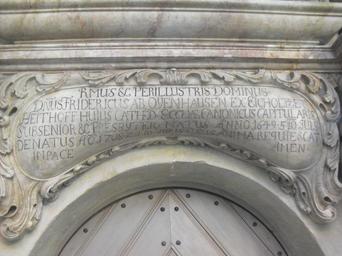 RMUS & PERILLUSTRIS DOMINUS
DNUS FRIDERICUS AB OYENHAUSEN EX EICHOLTZ ET
HEITHOFF HUIUS CATHED & CCLIAE CANONICUS CAPITULARIS
SUBSENIOR & PRESBYTER NATUS ANNO 1649 5 IULI
DENATUS ANIMA REQUIESCAT
IN PACE AMEN